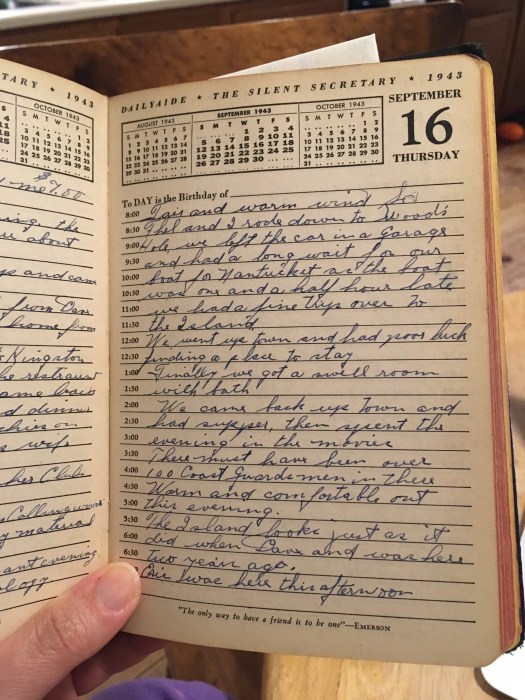 TARY ★ 1943
OCTOBER 1943
$
7.00
ing, the
about
and came
from
home from
Kingston
he restraunt
ame back
d dinner
on
wife
her Club
material
ant evening
ology
DAILYAIDE ★ THE SILENT SECRETARY ★ 1943
AUGUST 1943
S M T W T F S
1 2 3 4 5 6 7
8 9 10 11 12 13 14
15 16 17 18 19 20 21
22 23 24 25 26 27 28
29 30 31
SEPTEMBER 1943
S M T W T F S
1 2 3 4
5 6 7 8 9 10 11
12 13 14 15 16 17 18
19 20 21 22 23 24 25
26 27 28 29 30
OCTOBER 1943
S M T W T F S
1 2
3 4 5 6 7 8 9
10 11 12 13 14 15 16
17 18 19 20 21 22 23
24 25 26 27 28 29 30
31
SEPTEMBER
16
THURSDAY
To DAY is the Birthday of
8:00 Fair and warm wind So
8:30 Thel and I rode down to Woods
9:00 Hole, we left the car in a Garage
9:30 and had a long wait for our
10:00 boat for Nantucket as the boat
10:30 was one and a half hour late
11:00 we had a fine trip over to
11:30 the Island,
12:00 We went up town and had poor luck
12:30 finding a place to stay
1:00 Finally we got a swell room
1:30 with bath
2:00 We came back up town and
2:30 had supper, then spent the
3:00 evening in the movies
3:30 There must have been over
4:00 100 Coast Guardsmen in there
4:30 Warm and comfortable out
5:00 this evening.
5:30 The Island looks just as it
6:00 did when Dave and was here
6:30 two years ago.
was here this afternoon
"The only way to have a friend is to be one"—EMERSON